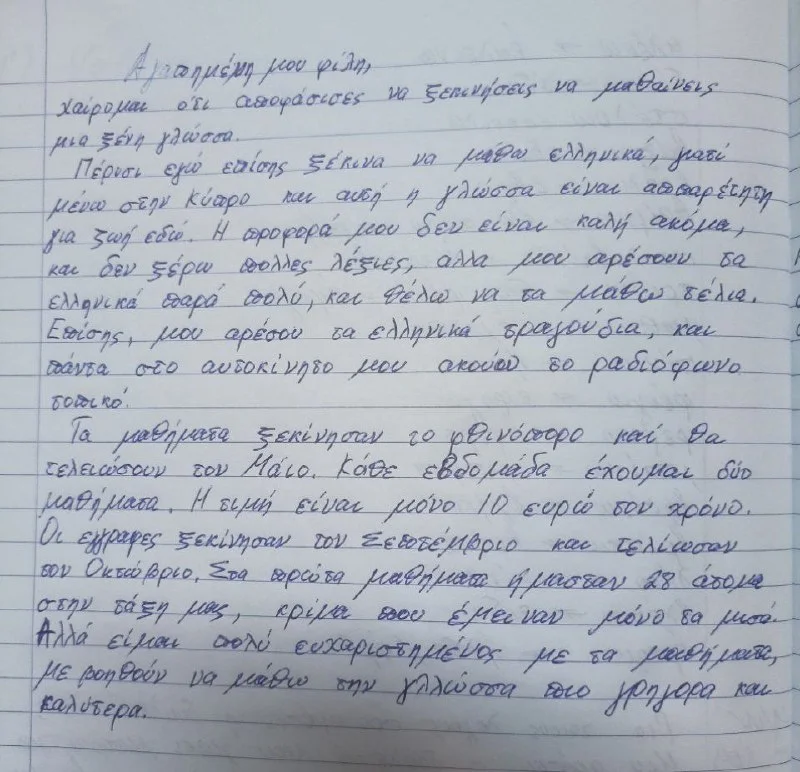 Αγαπημένη μου φίλη,
χαίρομαι ότι αποφάσισες να ξεκινήσεις να μαθαίνεις
μια ξένη γλώσσα.
Πέρισι εγώ επίσης ξέκινα να μάθω ελληνικά, γιατί
μένω στην Κύπρο και αυτή η γλώσσα είναι απαρέτητη
για ζωή εδώ. Η προφορά μου δεν είναι καλή ακόμα,
και δεν ξέρω πολλες λέξιες, αλλα μου αρέσουν τα
ελληνικά παρά πολύ, και θέλω να τα μάθω τέλια.
Επίσης, μου αρέσου τα ελληνικά τραγούδια, και
πάντα στο αυτοκίνητο μου ακούω το ραδιόφωνο
τοπικό.
Τα μαθήματα ξεκίνησαν το φθινόπορο και θα
τελειώσουν τον Μάιο. Κάθε εβδομάδα έχουμαι δύο
μαθήματα. Η τιμή είναι μόνο 10 ευρώ τον χρόνο.
Οι εγγραφες ξεκίνησαν τον Σεπτέμβριο και τελίωσαν
τον Οκτώβριο. Στα πρώτα μαθήματα ήμασταν 28 άτομα
στην τάξη μας, κρίμα που έμειναν μόνο τα μισά.
Αλλά είμαι πολύ ευχαριστημένος με τα μαθήματα,
με βοηθούν να μάθω την γλώσσα πιο γρήγορα και
καλύτερα.